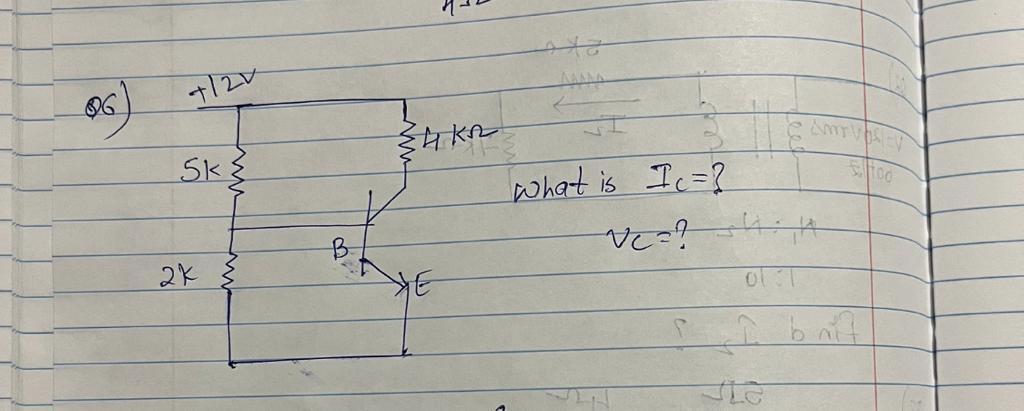 Q6)
+12V
5k
4 KΩ
What is Ic=?
Vc=?
B
2K
E